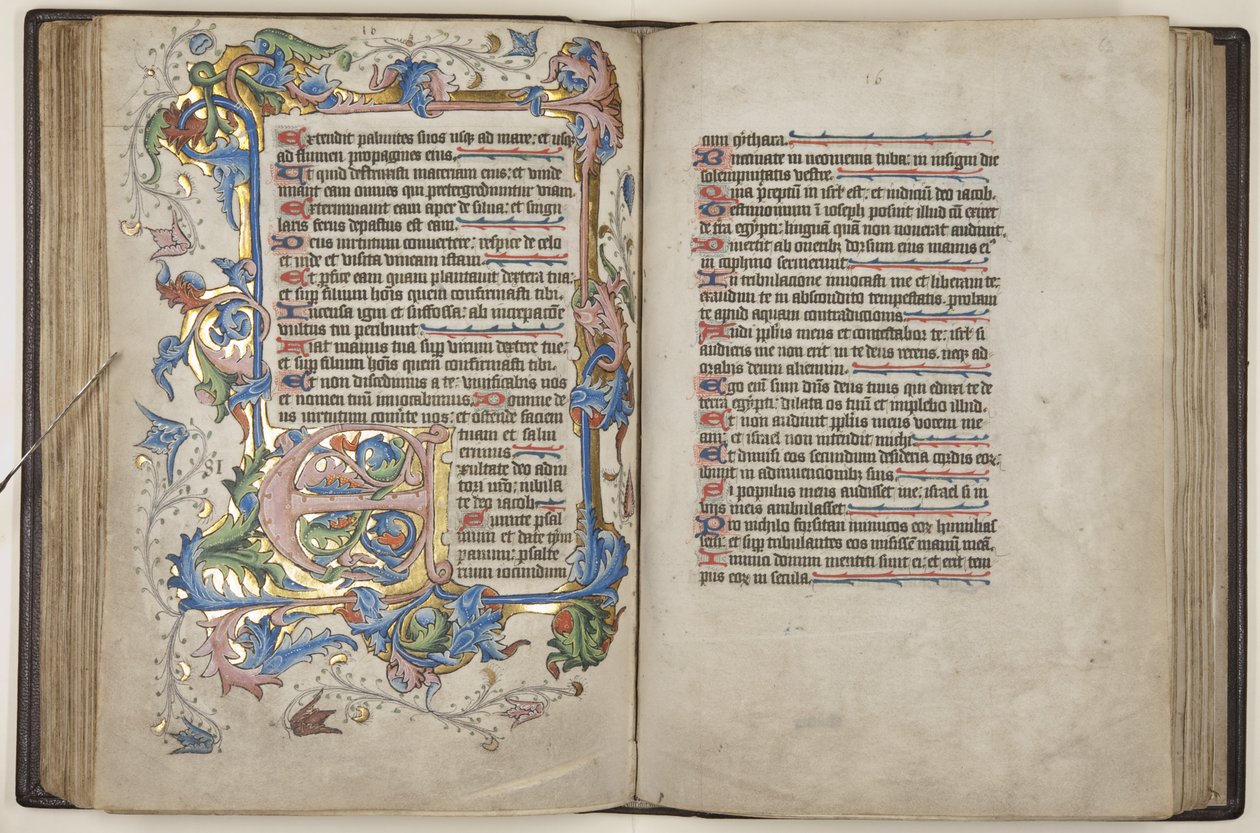 16
Extendit palmites suos usq; ad mare: et usq;
ad flumen propagines eius.
Ut quid destruxisti maceriam eius: et vinde
miant eam omnes qui pretegrediuntur viam.
Exterminavit eam aper de silva: et singu
laris ferus depastus est eam.
Deus virtutum convertere: respice de celo
et vide et visita vineam istam.
Et p̄fice eam quam plantavit dextera tua:
et sup̄ filium hōis quem confirmasti tibi.
Incensa igni et suffossa: ab increpacōe
vultus tui peribunt.
Fiat manus tua sup̄ virum dextere tue:
et sup̄ filium hōis quem confirmasti tibi.
Et non discedimus a te: vivificabis nos
et nomen tuū invocabimus. Domine de
us virtutum cōverte nos: et ostende faciem
tuam et salvi
erimus.
81
Exultate deo adiu
tori nr̄o: iubila
te deo iacob.
Sumite psal
mum et date tym
panum: psalte
rium iocundum
16
cum cythara.
Buccinate in neomenia tuba: in insigni die
solempnitatis vestre.
Quia p̄ceptū in isrł est: et iudiciū deo iacob.
Testimonium ī ioseph posuit illud cū exiret
de t̄ra egypti: linguā quā non noverat audivit.
Divertit ab oneribꝫ dorsum eius: manus eiꝰ
in cophino servierunt.
In tribulacione invocasti me et liberavi te:
exaudivi te in abscondito tempestatis: probavi
te apud aquam contradictionis.
Audi pp̄lus meus et contestabor te: isrł si
audieris me non erit in te deus recens: neq; ad
orabis deum alienum.
Ego eni̅ sum dn̄s deus tuus qui eduxi te de
terra egypti: dilata os tuū et implebo illud.
Et non audivit pp̄lus meus vocem me
am: et israel non intendit michi.
Et dimisi eos secundum desideria cordis eoꝝ:
ibunt in adinvencionibꝫ suis.
Si populus meus audisset me: israel si in
viis meis ambulasset.
Pro nichilo forsitan inimicos eoꝝ humilias
sem: et sup̄ tribulantes eos misissē manū meā.
Inimici domini mentiti sunt ei: et erit tem
pus eoꝝ in secula.